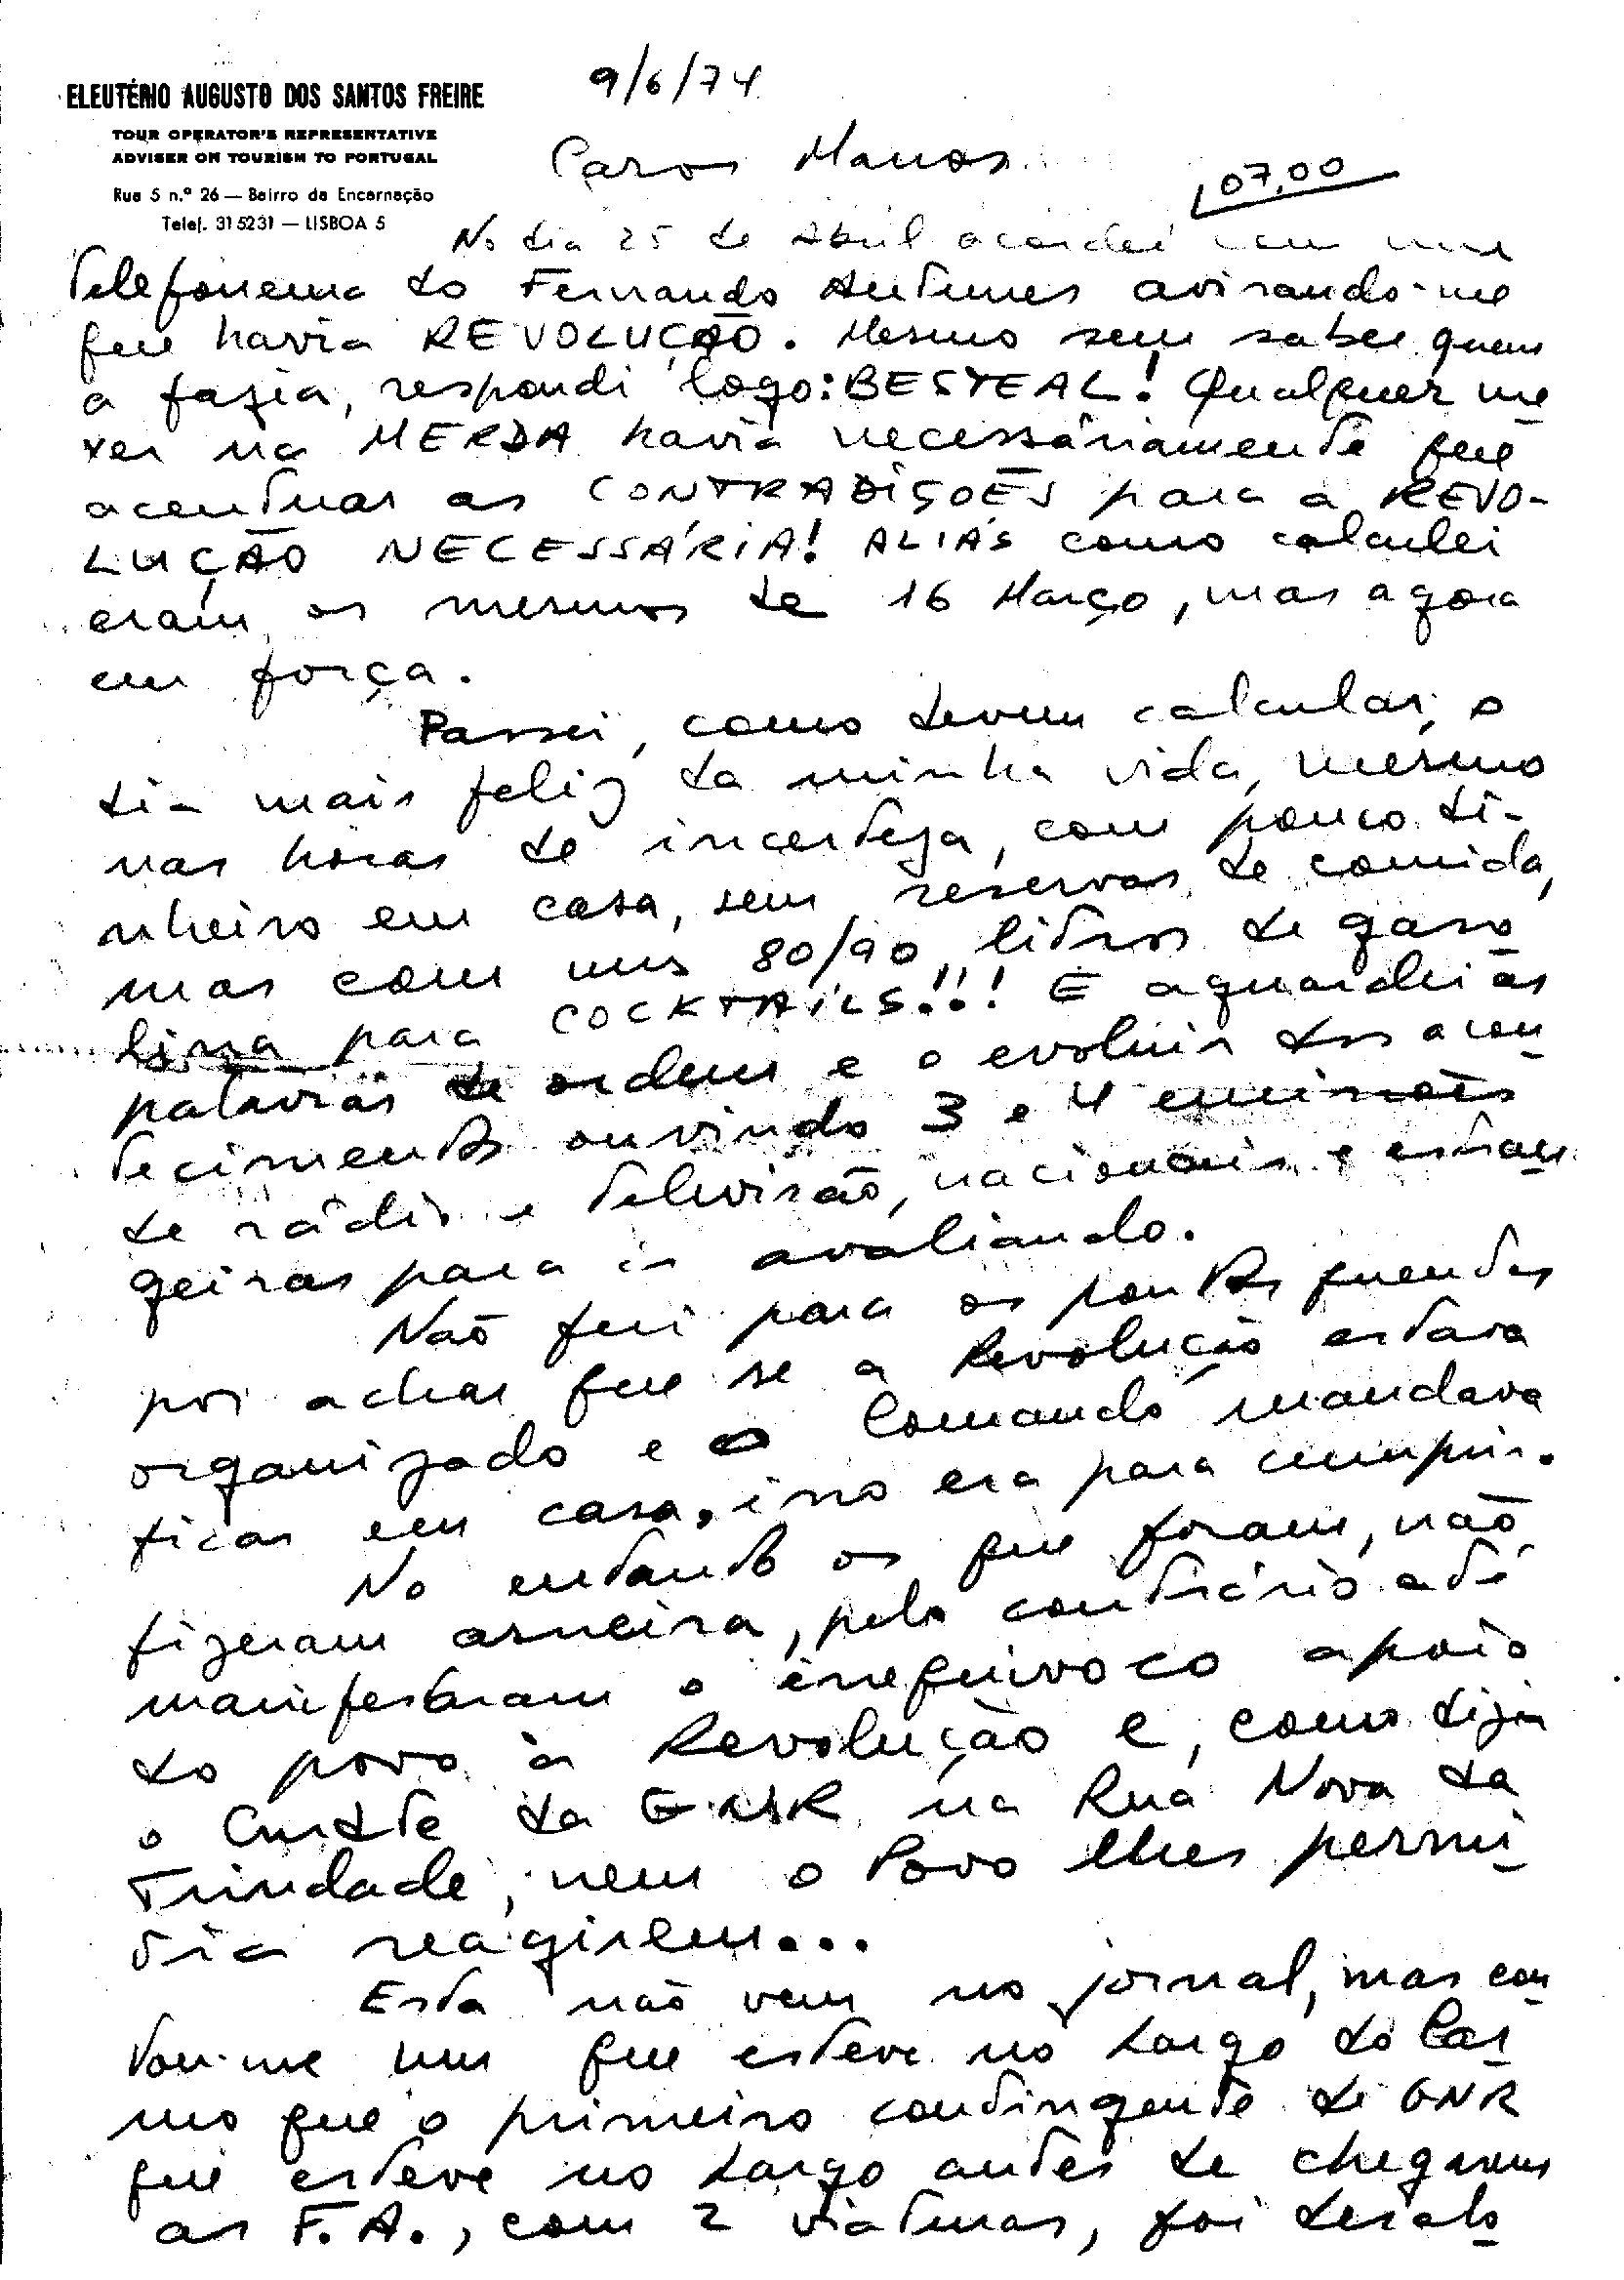 ELEUTÉRIO AUGUSTO DOS SANTOS FREIRE
TOUR OPERATOR'S REPRESENTATIVE
ADVISER ON TOURISM TO PORTUGAL
Rua 5 n.º 26 — Bairro da Encarnação
Telef. 315231 — LISBOA 5
9/6/74
Caros Manos
07,00
No dia 25 de Abril acordei com um
telefonema do Fernando Antunes avisando-me
que havia REVOLUÇÃO. Mesmo sem saber quem
a fazia, respondi logo: BESTEAL! Qualquer me
xer na MERDA havia necessáriamente que
acentuar as CONTRADIÇÕES para a REVO-
LUÇÃO NECESSÁRIA! ALIÁS como calculei
eram os mesmos de 16 Março, mas agora
em força.
Passei, como devem calcular, o
dia mais feliz da minha vida, mesmo
nas horas de incerteza, com pouco di-
nheiro em casa, sem reservas de comida,
mas com uns 80/90 litros de gaso
lina para COCKTAILS!!! E aguardei as
palavras de ordem e o evoluir dos acon
tecimentos ouvindo 3 e 4 emissões
de rádio e televisão, nacionais e estran
geiras para ir avaliando.
Não fui para os pontos quentes
por achar que se a Revolução estava
organizado e o Comando mandava
ficar em casa, isso era para cumprir.
No entanto os que foram, não
fizeram asneira, pelo contrário até
manifestaram o inequivoco apoio
do povo à Revolução e, como dizia
o Cmdte da GNR na Rua Nova da
Trindade, nem o Povo lhes permi
tia reagirem...
Esta não vem no jornal, mas con
tou-me um que esteve no Largo do Car
mo que o primeiro contingente de GNR
que esteve no Largo antes de chegarem
as F.A., com 2 viaturas, foi desalo